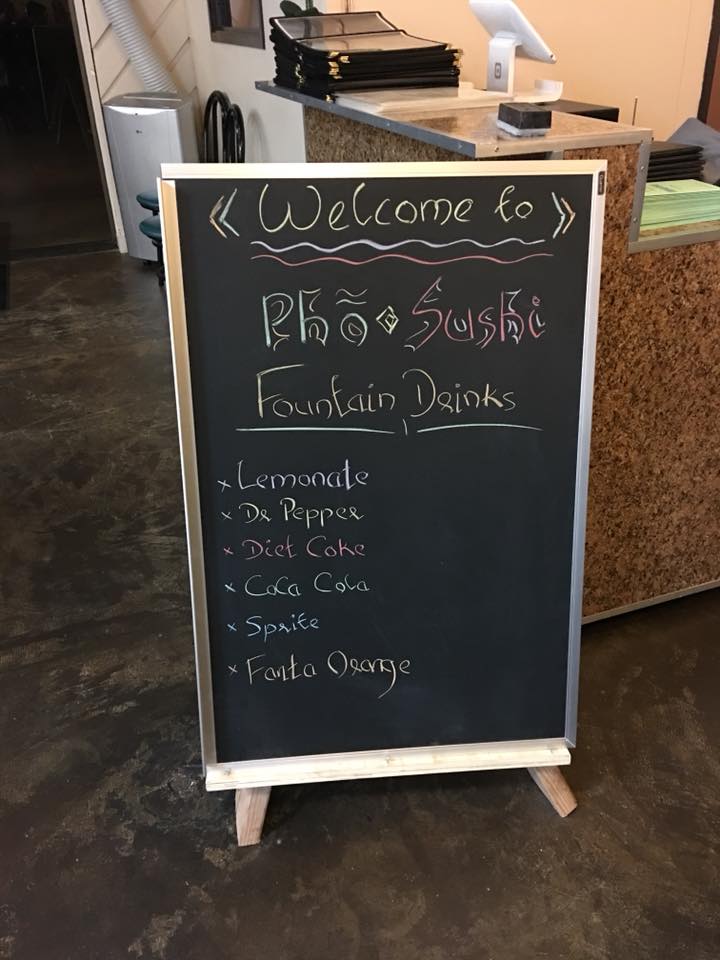 « Welcome to »
Phõ Sushi
Fountain Drinks
x Lemonate
x Dr Pepper
x Diet Coke
x CoCa Cola
x Sprite
x Fanta Orange